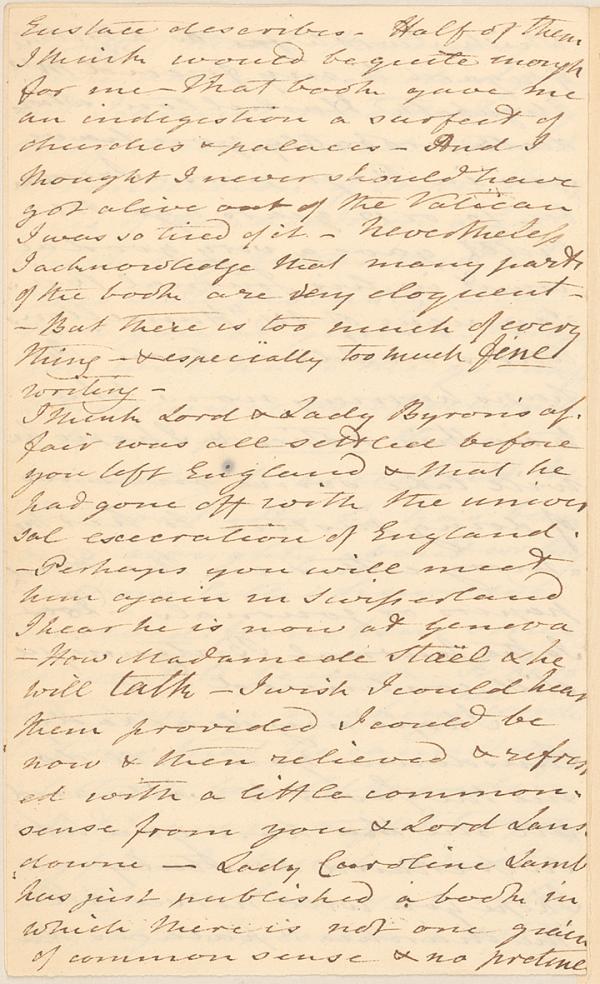 Eustace describes - Half of them
I think would be quite enough
for me - That book gave me
an indigestion a surfeit of
churches & palaces - And I
thought I never should have
got alive out of the Vatican
I was so tired of it - Nevertheless
I acknowledge that many parts
of the book are very eloquent -
- But there is too much of every
thing - & especially too much fine
writing -
I think Lord & Lady Byron's af-
fair was all settled before
you left England & that he
had gone off with the univer
sal execration of England.
- Perhaps you will meet
him again in Swisserland
I hear he is now at Geneva
- How Madame de Staël & he
will talk - I wish I could hear
them provided I could be
now & then relieved & refresh
ed with a little common-
sense from you & Lord Lans
downe - Lady Caroline Lamb
has just published a book in
which there is not one grain
of common sense & no